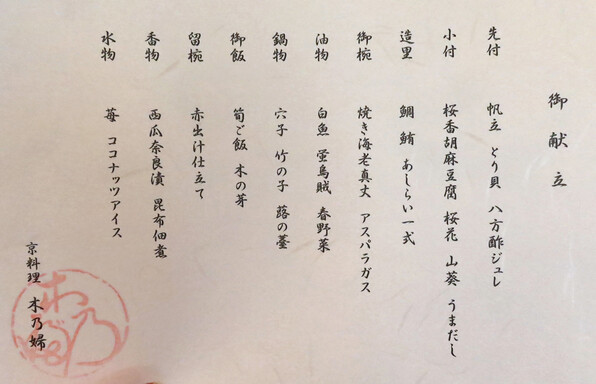 御献立
先付 帆立 とり貝 八方酢ジュレ
小付 桜香胡麻豆腐 桜花 山葵 うまだし
造里 鯛 鮪 あしらい一式
御椀 焼き海老真丈 アスパラガス
油物 白魚 蛍烏賊 春野菜
鍋物 穴子 竹の子 蕗の薹
御飯 筍ご飯 木の芽
留椀 赤出汁仕立て
香物 西瓜奈良漬 昆布佃煮
水物 苺 ココナッツアイス
京料理 木乃婦